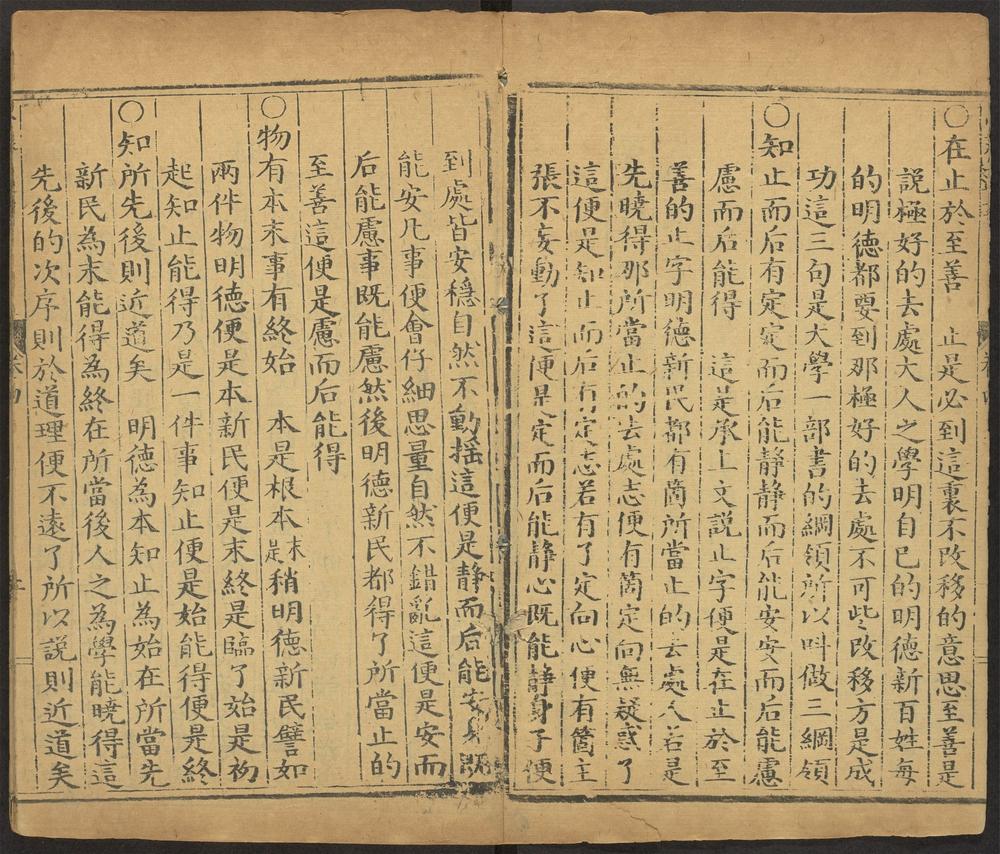 ○在止於至善　止是必到這裏不改移的意思至善是
說極好的去處大人之學明自已的明德新百姓每
的明德都要到那極好的去處不可些改移方是成
功這三句是大學一部書的綱領所以呌做三綱領
○知止而后有定定而后能静静而后能安安而后能慮
慮而后能得　這是承上文說止字便是在止於至
善的止字明德新民都有箇所當止的去處人若是
先曉得那所當止的去處志便有箇定向無疑惑了
這便是知止而后有定志若有了定向心便有箇主
張不妄動了這便是定而后能静心既能静身子便
到處皆安穩自然不動揺這便是静而后能安身既
能安凡事便會仔細思量自然不錯亂這便是安而
后能慮事既能慮然後明德新民都得了所當止的
至善這便是慮而后能得
○物有本末事有終始　本是根本末是稍明德新民譬如
兩件物明德便是本新民便是末終是臨了始是初
起知止能得乃是一件事知止便是始能得便是終
○知所先後則近道矣　明德為本知止為始在所當先
新民為末能得為終在所當後人之為學能曉得這
先後的次序則於道理便不遠了所以說則近道矣